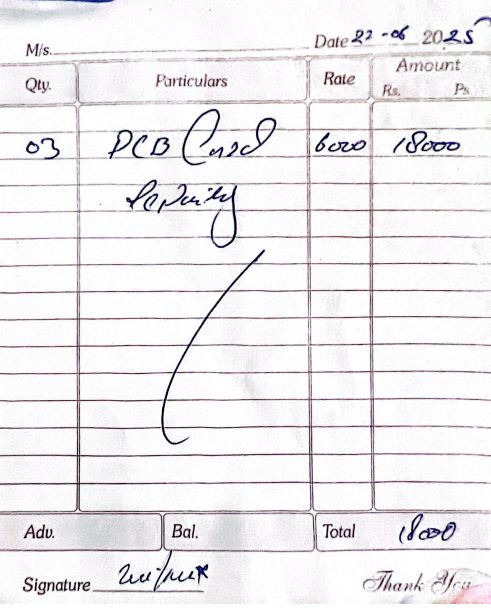 M/s. Date 22-06 2025
Qty. Particulars Rate Amount
Rs. Ps
03 PCB Card 6000 18000
Repairing
Adv. Bal. Total 18000
Signature
Thank You